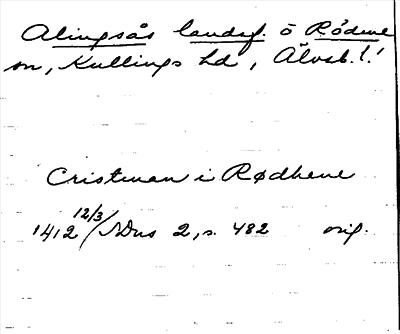 Alingsås landsf. ö Rödene
sn, Kullings hd, Älvsb. l.
Cristman i Rødhene
1412 12/3 / SDns 2, s. 482 orig.